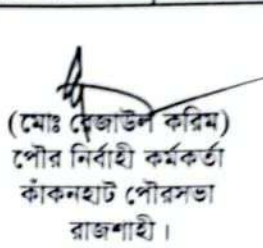 (মোঃ রেজাউল করিম)
পৌর নির্বাহী কর্মকর্তা
কাঁকনহাট পৌরসভা
রাজশাহী।